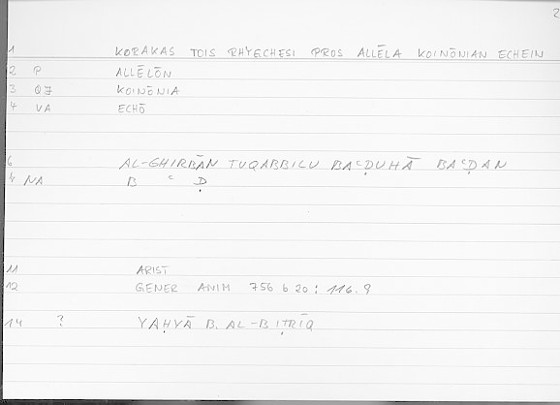 2
1 KORAKAS TOIS RHYGCHESI PROS ALLĒLA KOINŌNIAN ECHEIN
2 P ALLĒLŌN
3 QJ KOINŌNIA
4 VA ECHŌ
6 AL-GHIRBĀN TUQABBILU BAʿḌUHĀ BAʿḌAN
NA B ʿ Ḍ
11 ARIST
12 GENER ANIM 756 b 20 : 116.9
14 ? YAḤYĀ B. AL-BIṬRĪQ